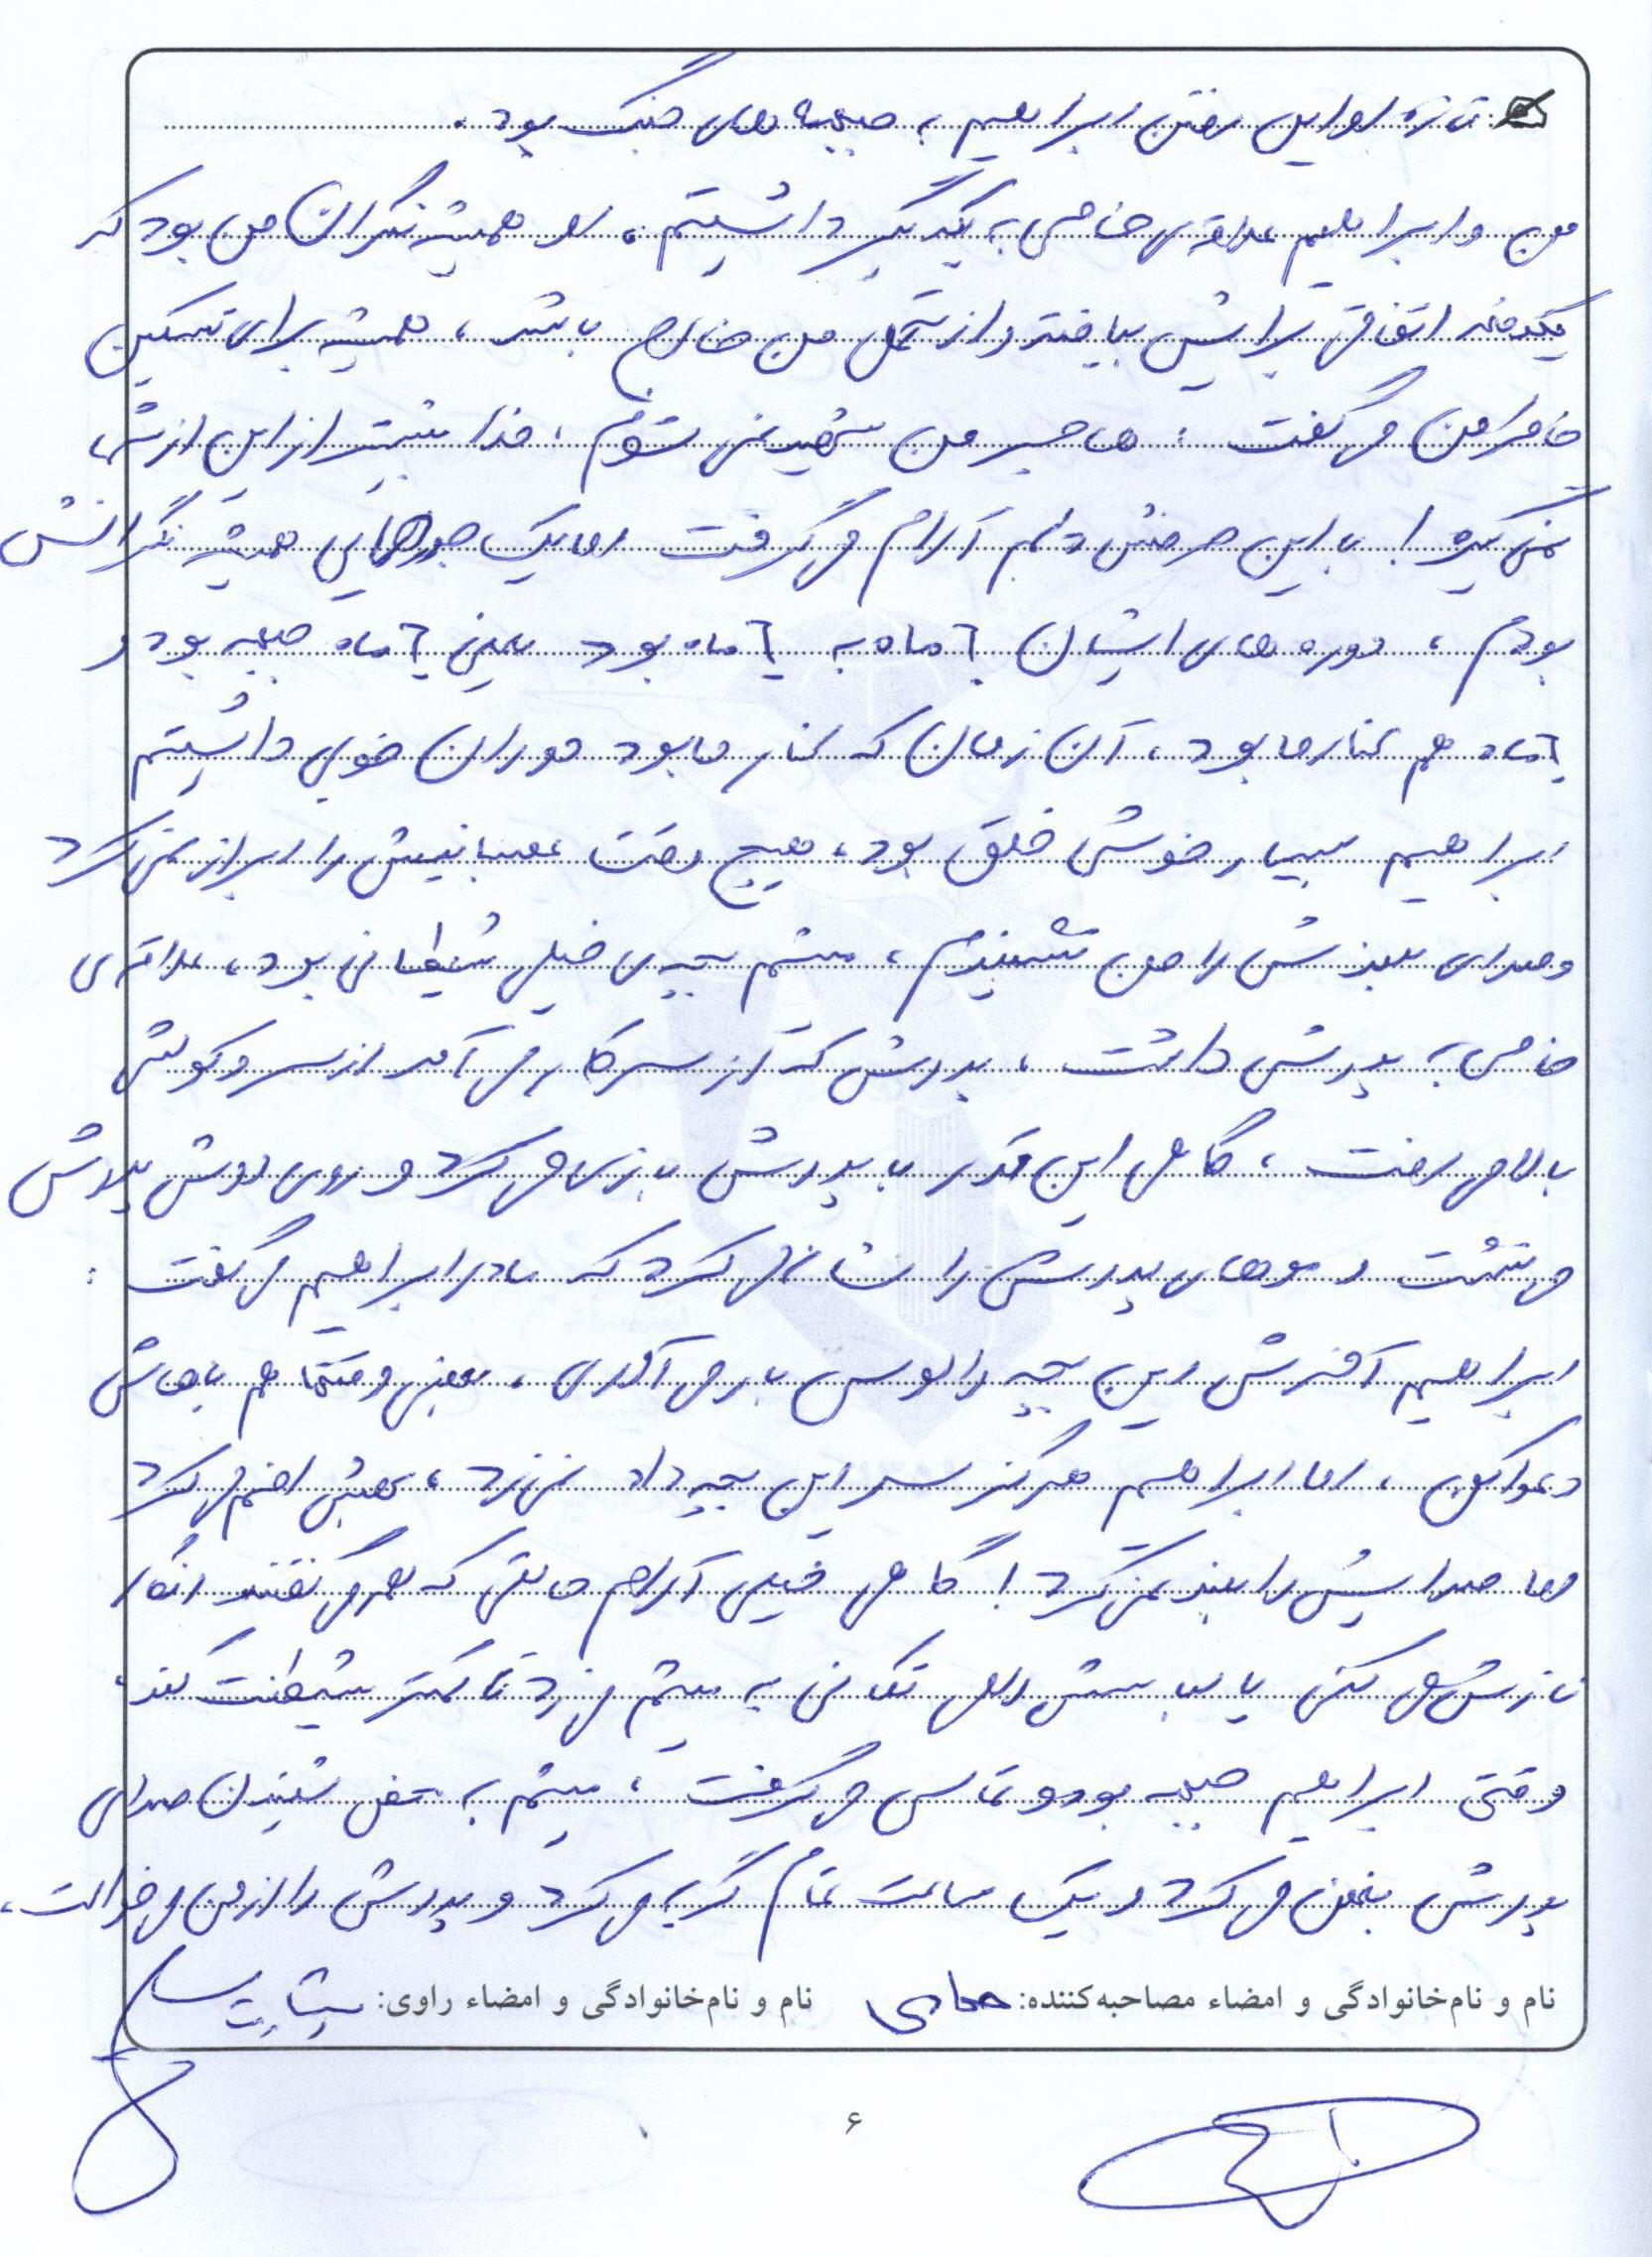 تازه اوایل رفتن ابراهیم به جبهه های جنگ بود.
من و ابراهیم علاقه ی خاصی به یکدیگر داشتیم، او همیشه نگران من بود که
یکدفعه اتفاقی برایش بیافتد و از تحمل من خارج باشد، همیشه برای تسکین
خاطر من می گفت: هاجر من شهید نمی شوم، خدا بیشتر از این از شما
نمی گیره! با این حرفش دلم آرام می گرفت اما یک جورهایی همیشه نگرانش
بودم، دوره های ایشان ۶ ماه به ۶ ماه بود یعنی ۶ ماه جبهه بود و
۶ ماه هم کنار ما بود، آن زمان که کنار ما بود دوران خوبی داشتیم
ابراهیم بسیار خوش خلق بود، هیچ وقت عصبانیتش را ابراز نمی کرد
و صدای بلندش را من نشنیدم، میثم بچه ی خیلی شیطانی بود، علاقه ی
خاصی به پدرش داشت، پدرش که از سر کار می آمد از سر و کولش
بالا می رفت، گاهی این قدر با پدرش بازی می کرد و روی دوش پدرش
می نشست و موهای پدرش را شانه می کرد که مادر ابراهیم می گفت:
ابراهیم آخرش این بچه را لوس بار می آوری، بعضی وقتها هم باهاش
دعوا کن، اما ابراهیم هرگز سر این بچه داد نمی زد، بهش اخم می کرد
اما صدایش را بلند نمی کرد! گاهی خیلی آرام که می گفتند انگار
نازش می کنی یا تکانی به میثم می زد تا کمتر شیطنت کند،
وقتی ابراهیم جبهه بود و تماس می گرفت، میثم به محض شنیدن صدای
پدرش بغض می کرد و یک ساعت تمام گریه می کرد و پدرش را از من می خواست،
نام و نام‌خانوادگی و امضاء مصاحبه‌کننده: نام و نام‌خانوادگی و امضاء راوی:
۶